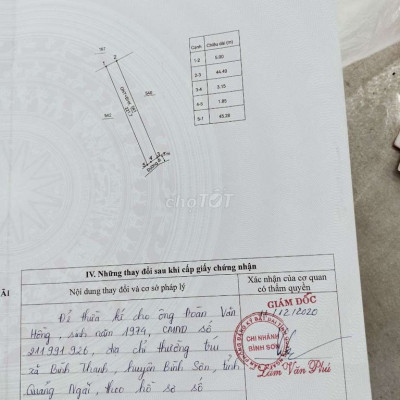 Cạnh Chiều dài (m)
1-2 5.00
2-3 44.49
3-4 3.15
4-5 1.85
5-1 45.28
767
1 2
842
846
5 4 3
Đường
choTỐT
IV. Những thay đổi sau khi cấp giấy chứng nhận
Nội dung thay đổi và cơ sở pháp lý
Xác nhận của cơ quan
có thẩm quyền
ÃI
GIÁM ĐỐC
/12/2020
Để thừa kế cho ông Đoàn Văn
Hồng, sinh năm 1974, CMND số
211991926, địa chỉ thường trú
xã Bình Thanh, huyện Bình Sơn, tỉnh
Quảng Ngãi, theo hồ sơ số
CHI NHÁNH
BÌNH SƠN
Lâm Văn Phú